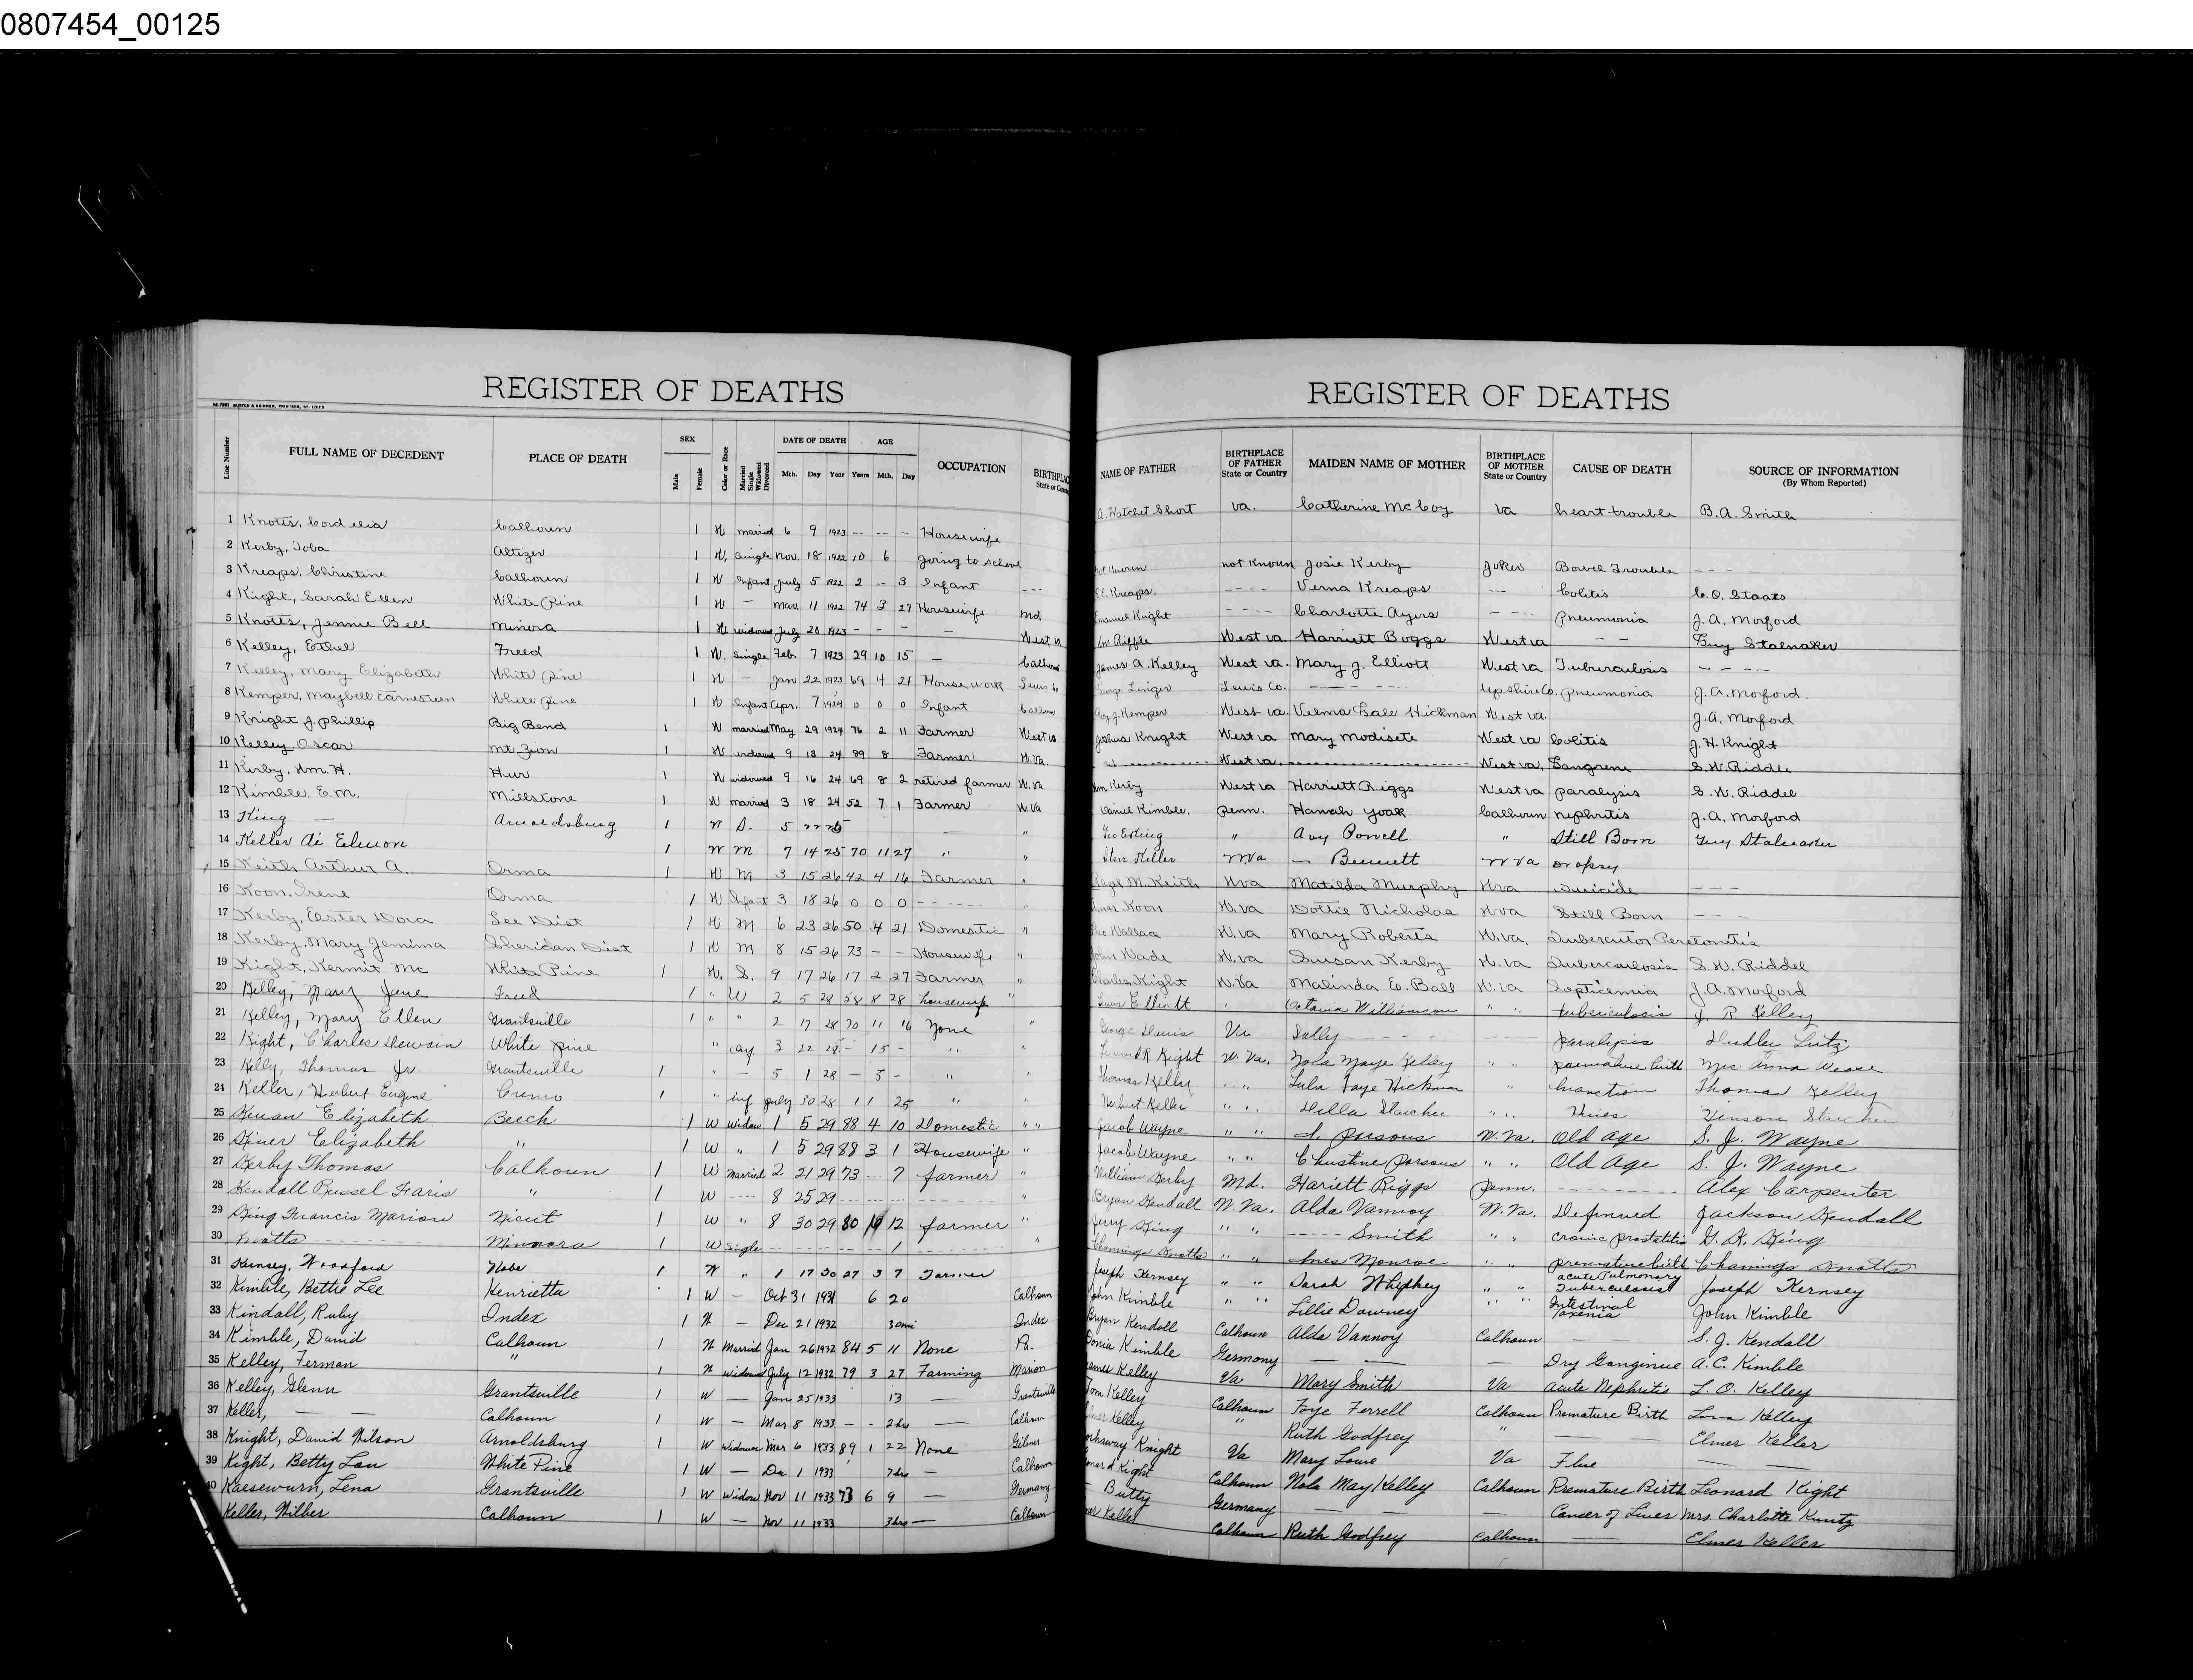 0807454_00125
REGISTER OF DEATHS
REGISTER OF DEATHS
Line Number FULL NAME OF DECEDENT PLACE OF DEATH SEX Male Female Color or Race Married Single Widowed Divorced DATE OF DEATH Mth. Day Year AGE Years Mth. Day OCCUPATION BIRTHPLAC State or Coun
NAME OF FATHER BIRTHPLACE OF FATHER State or Country MAIDEN NAME OF MOTHER BIRTHPLACE OF MOTHER State or Country CAUSE OF DEATH SOURCE OF INFORMATION (By Whom Reported)
1 Knotts, Cordelia Calhoun 1 W married 6 9 1923 -- -- - Housewife A. Hatchet Short Va. Catherine McCoy Va heart trouble B.A. Smith
2 Kerby, Toba Altizer 1 W. Single Nov. 18 1922 10 6 going to school not known Josie Kerby Joker Bowel Trouble - - -
3 Kreaps, Christine Calhoun 1 W Infant July 5 1922 2 -- 3 Infant --- Kreaps. ---- Verna Kreaps --- Colitis C.O. Staats
4 Kight, Sarah Ellen White Pine 1 W — Mar. 11 1922 74 3 27 Housewife Md Emanuel Knight ---- Charlotte Ayers ---- Pneumonia J.A. Morford
5 Knotts, Jennie Bell Minora 1 W widowed July 20 1923 - - - — West Va Riffle West Va. Harriett Boggs West Va — — Guy Stalnaker
6 Kelley, Ethel Freed 1 W. Single Feb. 7 1923 29 10 15 — Calhoun James A. Kelley West Va. Mary J. Elliott West Va Tuberculosis - - - -
7 Kelley, Mary Elizabeth White Pine 1 W - Jan 22 1923 69 4 21 House work Lewis Co George Linger Lewis Co. ---- ---- Upshire Co. Pneumonia J.A. Morford.
8 Kemper, Maybell Earnesteen White Pine 1 W Infant Apr. 7 1924 0 0 0 Infant Calhoun J. Kemper West Va. Velma Gale Hickman West Va. J.A. Morford
9 Knight J. Phillip Big Bend 1 W married May 29 1924 76 2 11 Farmer West Va Joshua Knight West Va Mary Modisete West Va Colitis J.H. Knight
10 Kelley Oscar Mt. Zion 1 W widowed 9 13 24 89 8 Farmer W.Va. West Va. West Va. Gangrene S.W. Riddle
11 Kerby, Wm. H. Hur 1 W widowed 9 16 24 69 8 2 retired farmer W.Va Wm Kerby West Va Harriett Riggs West Va Paralysis S.W. Riddel
12 Kimble. E.M. Millstone 1 W married 3 18 24 52 7 1 Farmer W.Va Daniel Kimble. Penn. Hannah Yoak Calhoun Nephritis J.A. Morford
13 King — Arnoldsburg 1 W S. 5 — " Geo E King " Avy Powell " Still Born Guy Stalnaker
14 Keller Ai Edmon 1 W M 7 14 25 70 11 27 " " Keller W Va — Bennett W Va Dropsy
15 Keith Arthur A. Orma 1 W M 3 15 26 42 4 16 Farmer " M. Keith W Va Matilda Murphy W Va Suicide - - -
16 Koon. Irene Orma 1 W Infant 3 18 26 0 0 0 ------ " Koon W. Va Dottie Nicholas W Va Still Born - - -
17 Kerby, Easter Dora Lee Dist 1 W M 6 23 26 50 4 21 Domestic " Wallace W. Va Mary Roberts W. Va. Tubercutor Peretonitis
18 Kerby, Mary Jemima Sheridan Dist 1 W M 8 15 26 73 - - Housewife " John Wade W. Va Susan Kerby W. Va Tuberculosis S.W. Riddel
19 Kight, Kermit Mc White Pine 1 W. S. 9 17 26 17 2 27 Farmer " Charles Kight W. Va Malinda E. Ball W. Va Septicemia J.A. Morford
20 Kelley, Mary Jane Freed 1 " W 2 5 28 58 8 28 housewife " Elliott " Octavia Williamson " " tuberculosis J. R Kelley
21 Kelley, Mary Ellen Grantsville 1 " " 2 17 28 70 11 16 None " George Va Sally - - - - - Paralysis
22 Kight, Charles Dewain White Pine " 3 22 28 - 15 - " Kight W. Va. Kelley " " premature birth Mrs. Anna
23 Kelly, Thomas Jr Grantsville 1 " — 5 1 28 — 5 - " Thomas Kelly " " Lula Faye Hickman " Thomas Kelley
24 Keller, Herbert Eugene Cremo 1 " inf July 30 28 11 25 " " Herbert Keller " " Della " "
25 Keenan Elizabeth Beech 1 W Widow 1 5 29 88 4 10 Domestic " " Jacob Wayne " " Parsons W. Va. Old Age S. J. Wayne
26 Elizabeth " 1 W " 1 5 29 88 3 1 Housewife " Jacob Wayne " " Christine Parsons " " Old Age S. J. Wayne
27 Kerby Thomas Calhoun 1 W Married 2 21 29 73 -- 7 farmer " William Kerby Md. Hariett Riggs Penn. -------- Alex Carpenter
28 Kendall Russel Faris " 1 W ---- 8 25 29 ---- " Bryan Kendall W. Va. Alda Vannoy W. Va. Jackson Kendall
29 King Francis Marion Nicut 1 W " 8 30 29 80 12 farmer " Jerry King " " ----- Smith " " Cronic prostatitis King
30 Knotts ------- Minnora 1 W Single ------ 1 ------ " Knotts " " Ines Monroe " " premature birth Knotts
31 Kernsey, Woodford Nobe 1 W " 1 17 30 27 3 7 Farmer Joseph Kernsey " " Sarah Whipkey " " acute Pulmonary Tuberculosis Joseph Kernsey
32 Kimble, Bettie Lee Henrietta 1 W — Oct 31 1931 6 20 Calhoun John Kimble " " Lillie Downey " " Intestinal Toxemia John Kimble
33 Kindall, Ruby Index 1 W — Dec 21 1932 30 mi Index Bryan Kendall Calhoun Alda Vannoy Calhoun — — S. J. Kendall
34 Kimble, David Calhoun 1 W Married Jan 26 1932 84 5 11 None Pa. Kimble Germany — — — Dry Ganginue A.C. Kimble
35 Kelley, Ferman " 1 W Widowed July 12 1932 79 3 27 Farming Marion James Kelley Va Mary Smith Va Acute Nephritis L. O. Kelley
36 Kelley, Glenn Grantsville 1 W — Jan 25 1933 13 — Grantsville Tom Kelley Calhoun Faye Ferrell Calhoun Premature Birth Lona Kelley
37 Keller, — — Calhoun 1 W — Mar 8 1933 — - 2 hrs — Calhoun Kelley " Ruth Godfrey " — Elmer Keller
38 Knight, David Wilson Arnoldsburg 1 W Widower Mar 6 1933 89 1 22 None Gilmer Knight Va Mary Lowe Va Flue — —
39 Kight, Betty Lou White Pine 1 W — Dec 1 1933 7 hrs — Calhoun Kight Calhoun Nola May Kelley Calhoun Premature Birth Leonard Kight
40 Kaesewurn, Lena Grantsville 1 W Widow Nov 11 1933 73 6 9 — Germany — Butty Germany — — — Cancer of Liver Mrs Charlotte Kuntz
Keller, Wilber Calhoun 1 W — Nov 11 1933 3 hrs — Calhoun Keller Calhoun Ruth Godfrey Calhoun — Elmer Keller